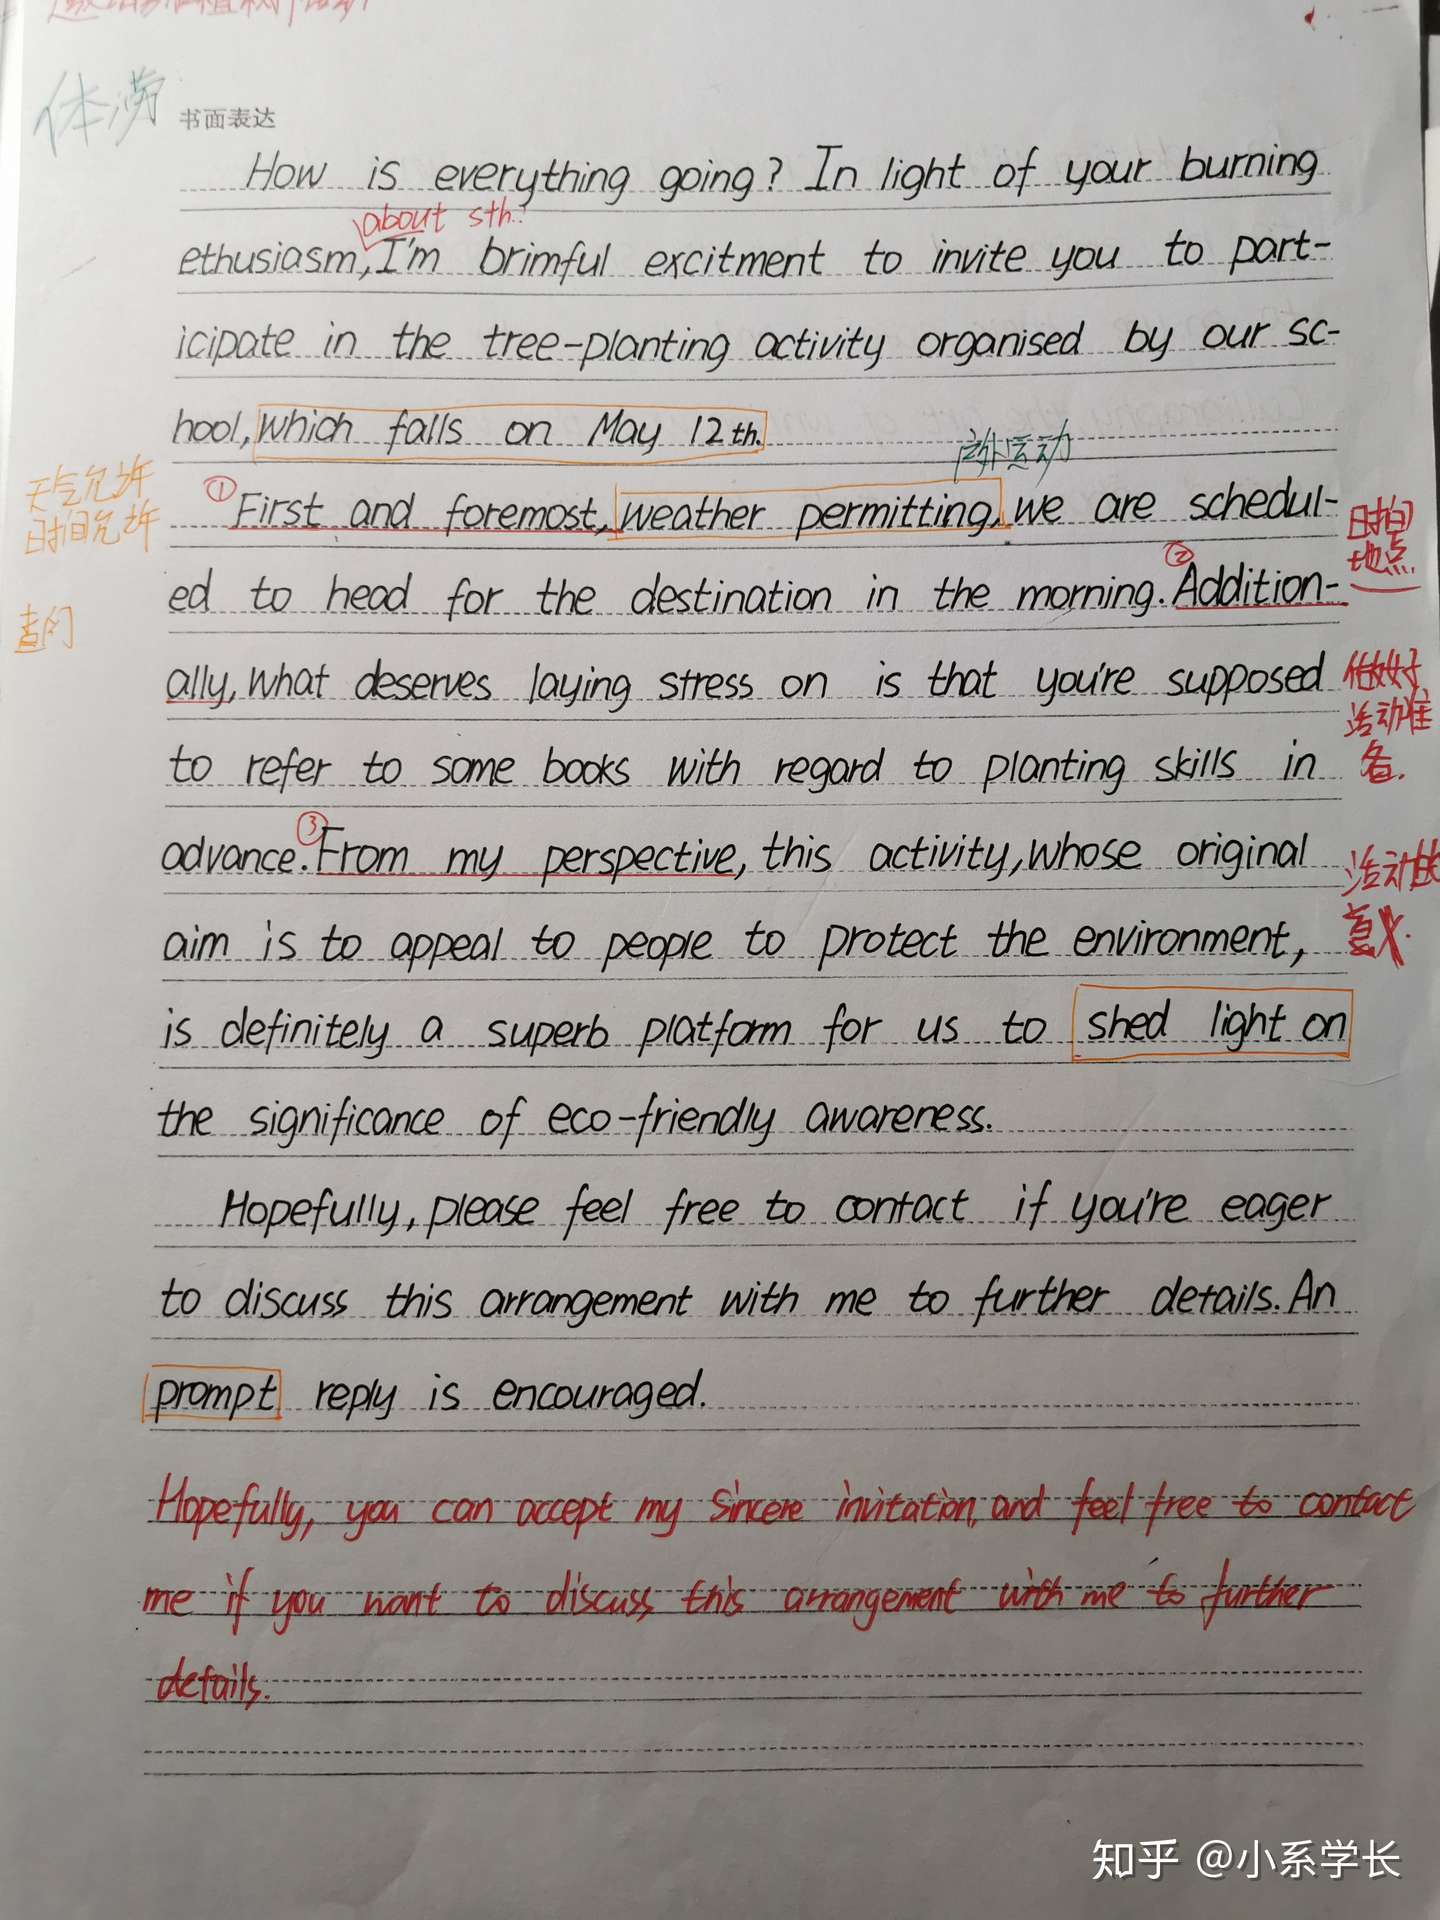 体涝
书面表达
How is everything going? In light of your burning
about sth.
ethusiasm, I'm brimful excitment to invite you to part-
icipate in the tree-planting activity organised by our sc-
hool, which falls on May 12th.
户外运动
天气允许
时间允许
① First and foremost, weather permitting, we are schedul-
时间
地点
ed to head for the destination in the morning. ② Addition-
ally, what deserves laying stress on is that you're supposed
做好
活动准
备.
to refer to some books with regard to planting skills in
advance. ③ From my perspective, this activity, whose original
活动的
意义.
aim is to appeal to people to protect the environment,
is definitely a superb platform for us to shed light on
the significance of eco-friendly awareness.
Hopefully, please feel free to contact if you're eager
to discuss this arrangement with me to further details. An
prompt reply is encouraged.
Hopefully, you can accept my sincere invitation, and feel free to contact
me if you want to discuss this arrangement with me to further
details.
知乎 @小系学长